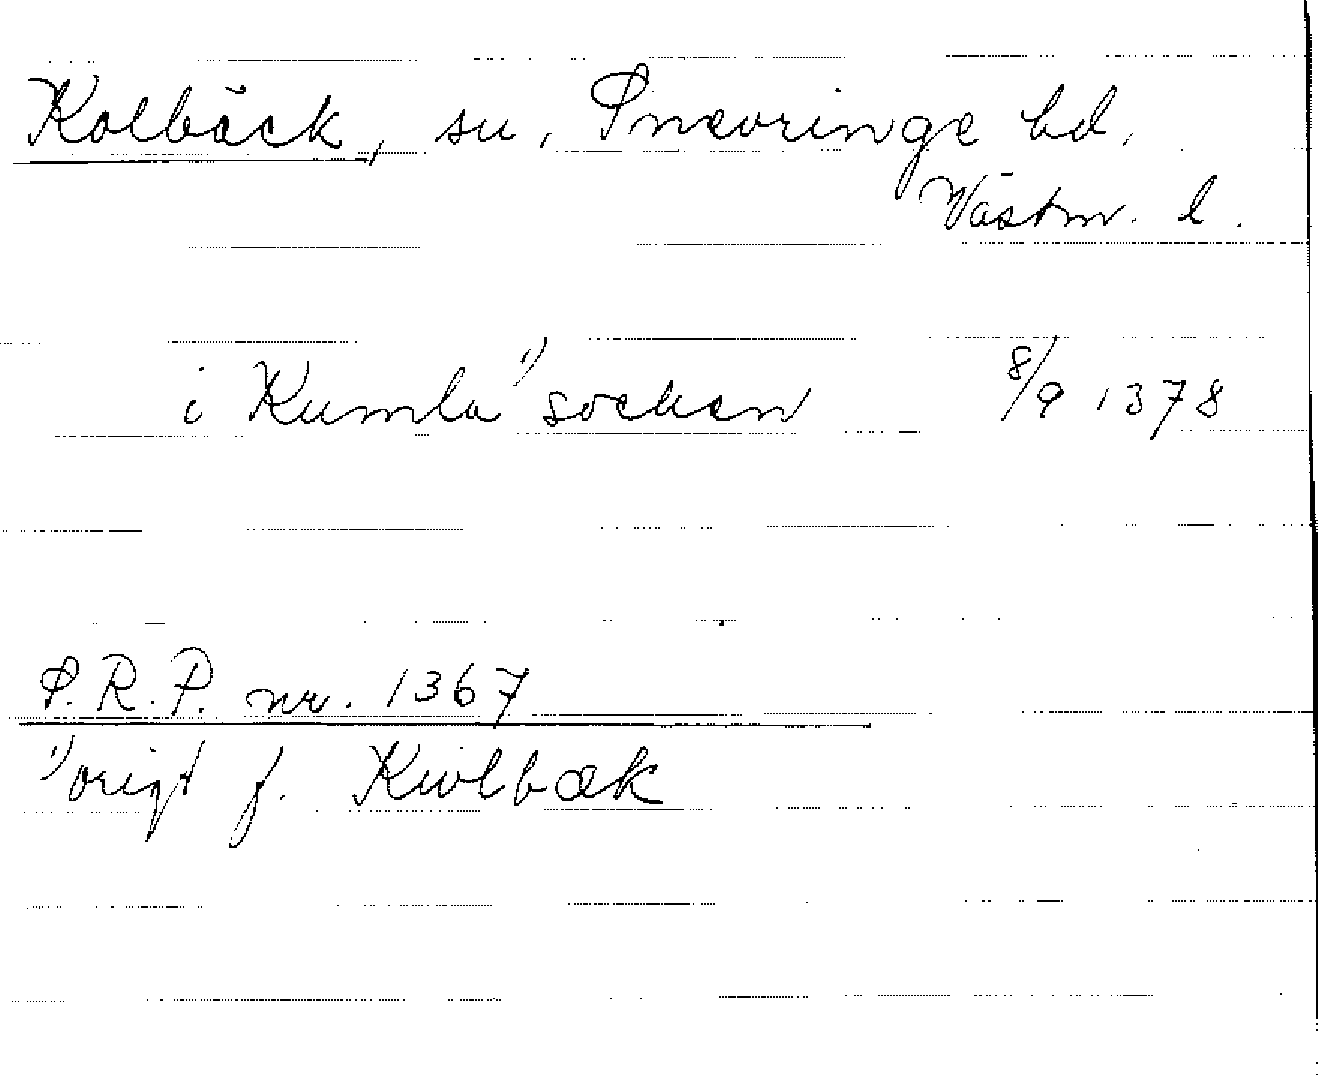 Kolbäck, sn, Snevringe hd,
Västm. l.
i Kumla ¹) socken 8/9 1378
S.R.P. nr. 1367
¹) origt f. Kivlbæk